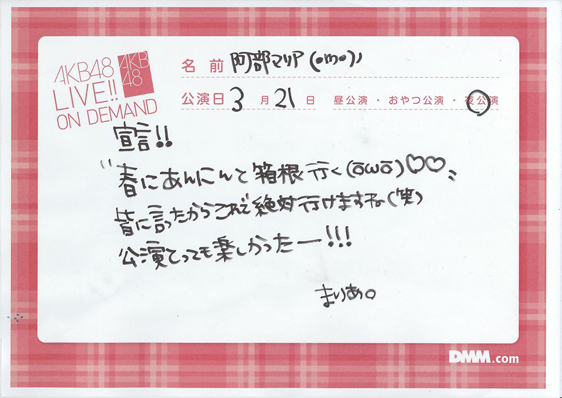 AKB48
LIVE!!
ON DEMAND
AKB
48
名前 阿部マリア(・ω・)ノ
公演日 3月21日 昼公演・おやつ公演・夜公演
宣言!!
"春にあんにんと箱根行く(ōωō)♡♡"
皆に言ったからこれで絶対行けますね(笑)
公演とっても楽しかったー!!!
まりあ。
DMM.com